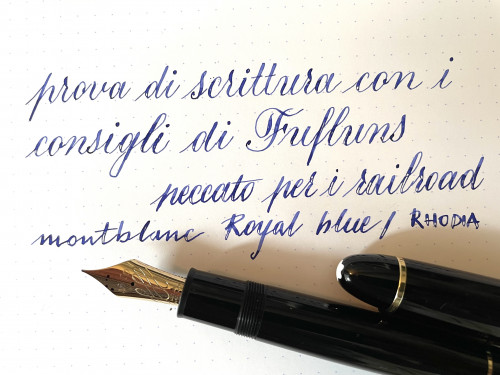 prova di scrittura con i
consigli di Fufluns
peccato per i railroad
montblanc Royal blue / RHODIA